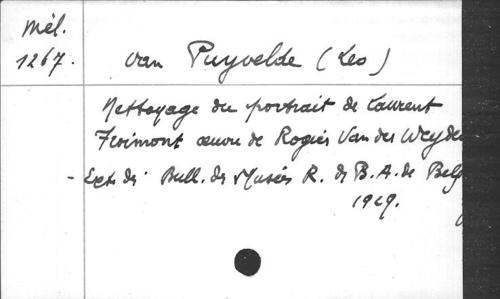 Mél.
1267.
van Puyvelde (Leo)
Nettoyage du portrait de Laurent
Froimont œuvre de Rogier Van der Weyden
- Extr. du Bull. des Musées R. de B.A. de Belg
1929.